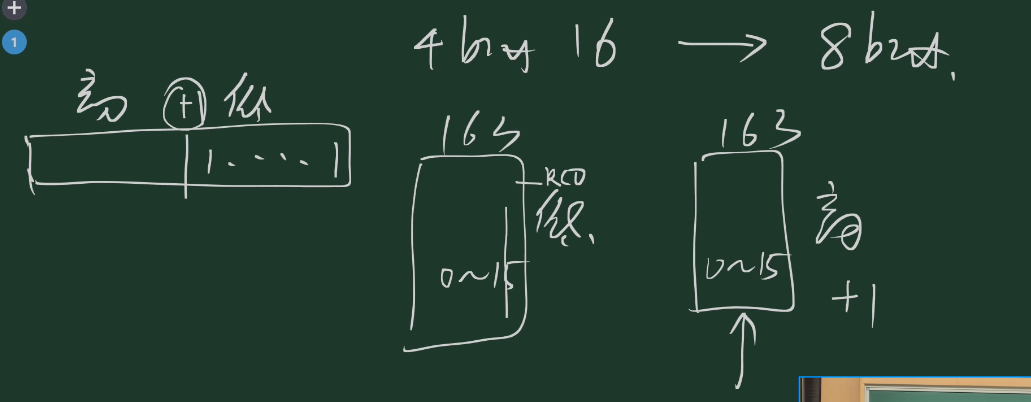 4 bit 16 → 8 bit.
高 +1 低
1 · · · · 1
163
RCO
低.
0~15
163
高
0~15
+1
1